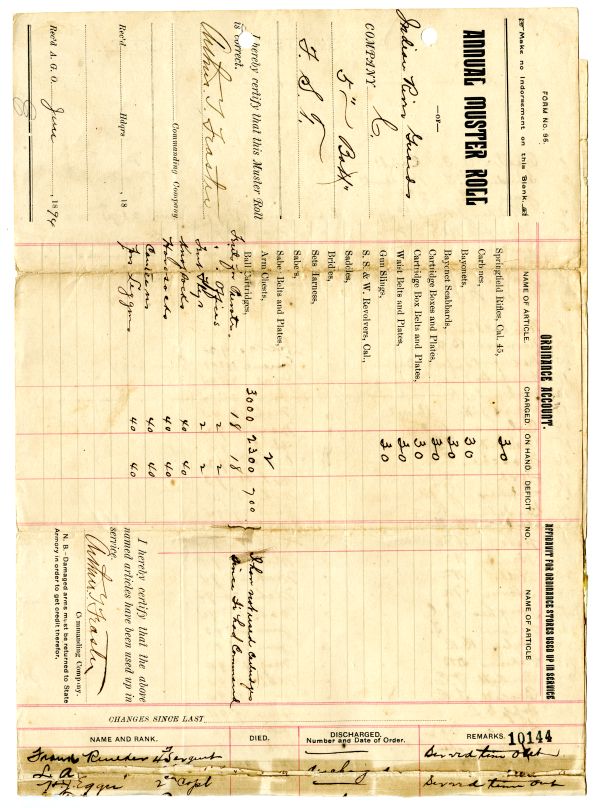 FORM No. 95.
Make no Indorsement on this Blank
ANNUAL MUSTER ROLL
—OF—
Indian River Guards
COMPANY C.
5" Batt
F. S. T.
I hereby certify that this Muster Roll
is correct.
Arthur T Feaster
Commanding Company.
Rec'd Hdqrs , 18
Rec'd A. G. O. June , 1894
ORDINANCE ACCOUNT.
NAME OF ARTICLE. CHARGED. ON HAND. DEFICIT
Springfield Rifles, Cal. 45, 30
Carbones,
Bayonets, 30
Bayonet Scabbards, 30
Cartridge Boxes and Plates, 30
Cartridge Box Belts and Plates, 30
Waist Belts and Plates, 30
Gun Slings, 30
S. S. & W. Revolvers, Cal.,
Saddles,
Brides,
Sets Harness,
Sabe's,
Sabe Belts and Plates,
Arm Chests, 2
Ball Cartridges, 3000 2300 700
18 18
Officers 2 2
2 2
40 40
40 40
Canteens 40 40
40 40
AFFIDAVIT FOR ORDINANCE STORES USED UP IN SERVICE
NO. NAME OF ARTICLE
I hav not used Catridges
since I had Command
I hereby certify that the above
named articles have been used up in
service.
Arthur T Feaster
Commanding Company.
N. B.—Damaged arms must be returned to State
Armory in order to get credit therefor.
CHANGES SINCE LAST
NAME AND RANK. DIED. DISCHARGED. Number and Date of Order. REMARKS. 10144
Frank 4 Sergent time out
L. A.
2nd Copl time out